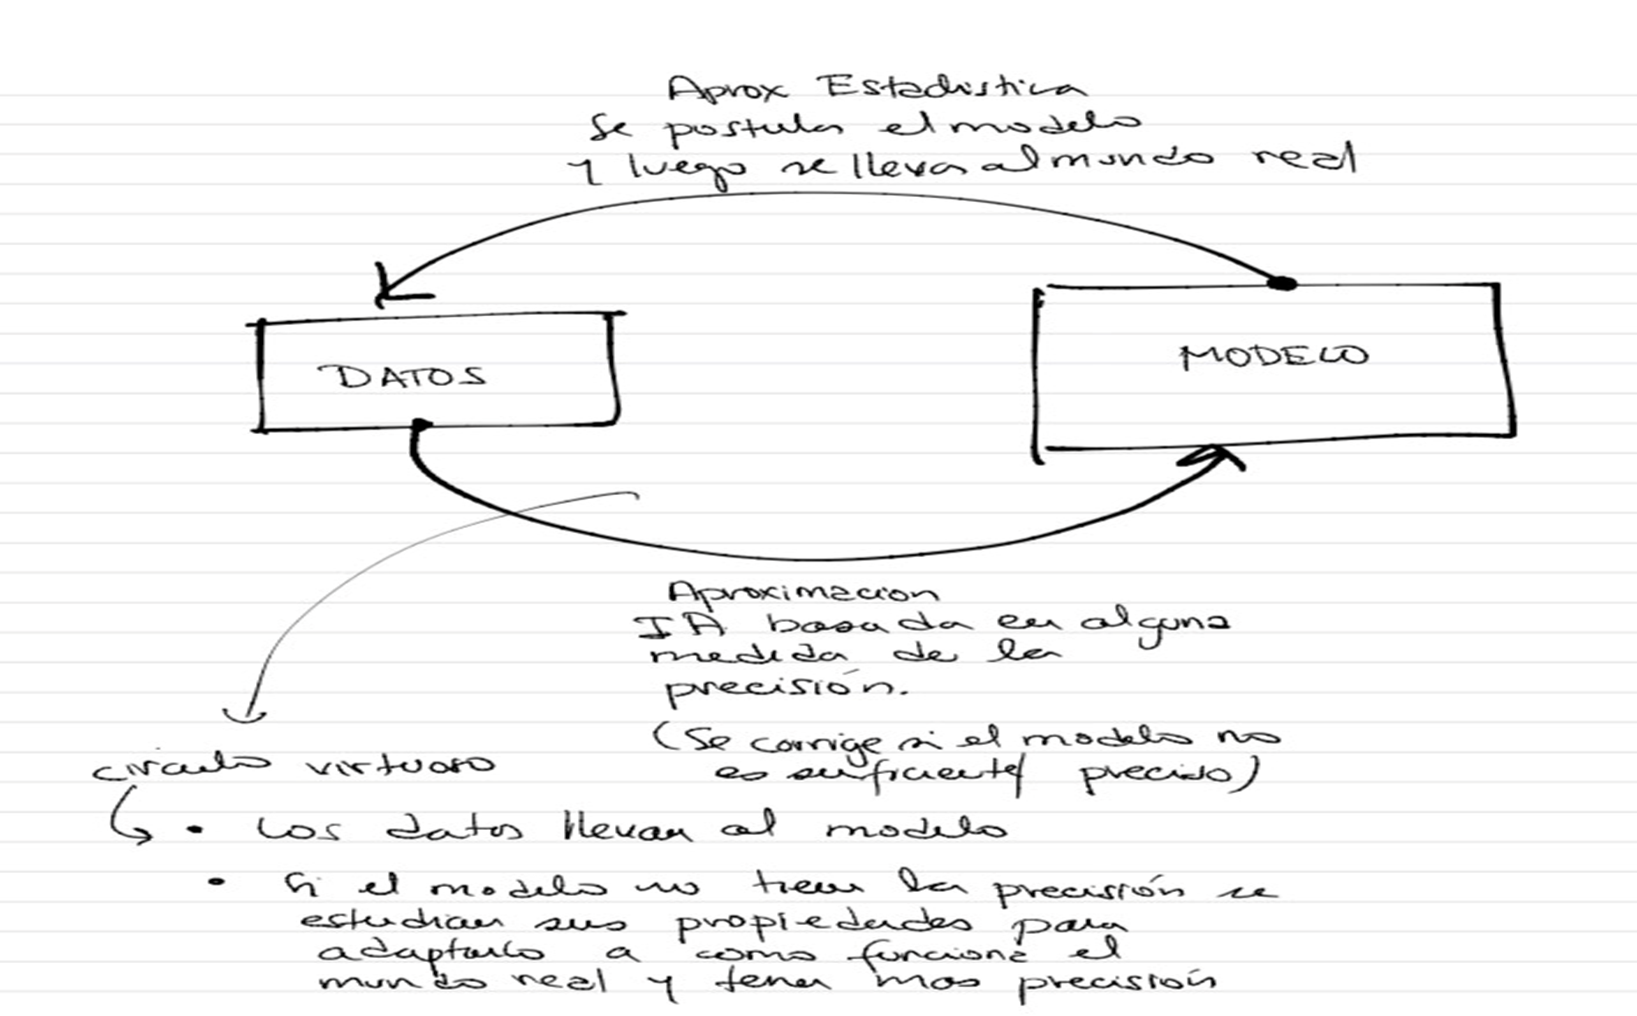 Aprox Estadistica
Se postula el modelo
y luego se lleva al mundo real
DATOS
MODELO
Aproximacion
IA basada en alguna
medida de la
precisión.
(Se corrige si el modelo no
es suficiente/ preciso)
circulo virtuoso
• Los datos llevan al modelo
• Si el modelo no tiene la precisión se
estudian sus propiedades para
adaptarlo a como funciona el
mundo real y tener mas precisión